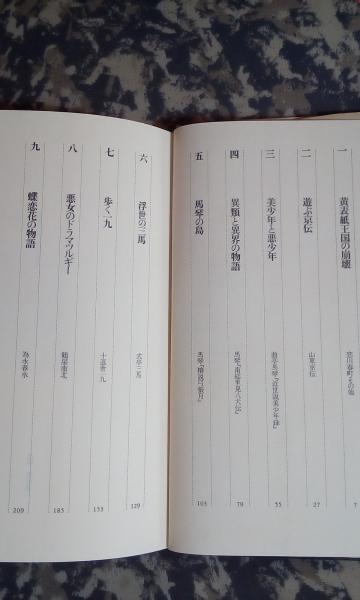 一 黄表紙王国の崩壊 恋川春町その他 7
二 遊ぶ京伝 山東京伝 27
三 美少年と悪少年 曲亭馬琴『近世説美少年録』 55
四 異類と異界の物語 馬琴『南総里見八犬伝』 79
五 馬琴の島 馬琴『椿説弓張月』 103
六 浮世の三馬 式亭三馬 129
七 歩く一九 十返舎一九 153
八 悪女のドラマツルギー 鶴屋南北 185
九 蝶恋花の物語 為永春水 209